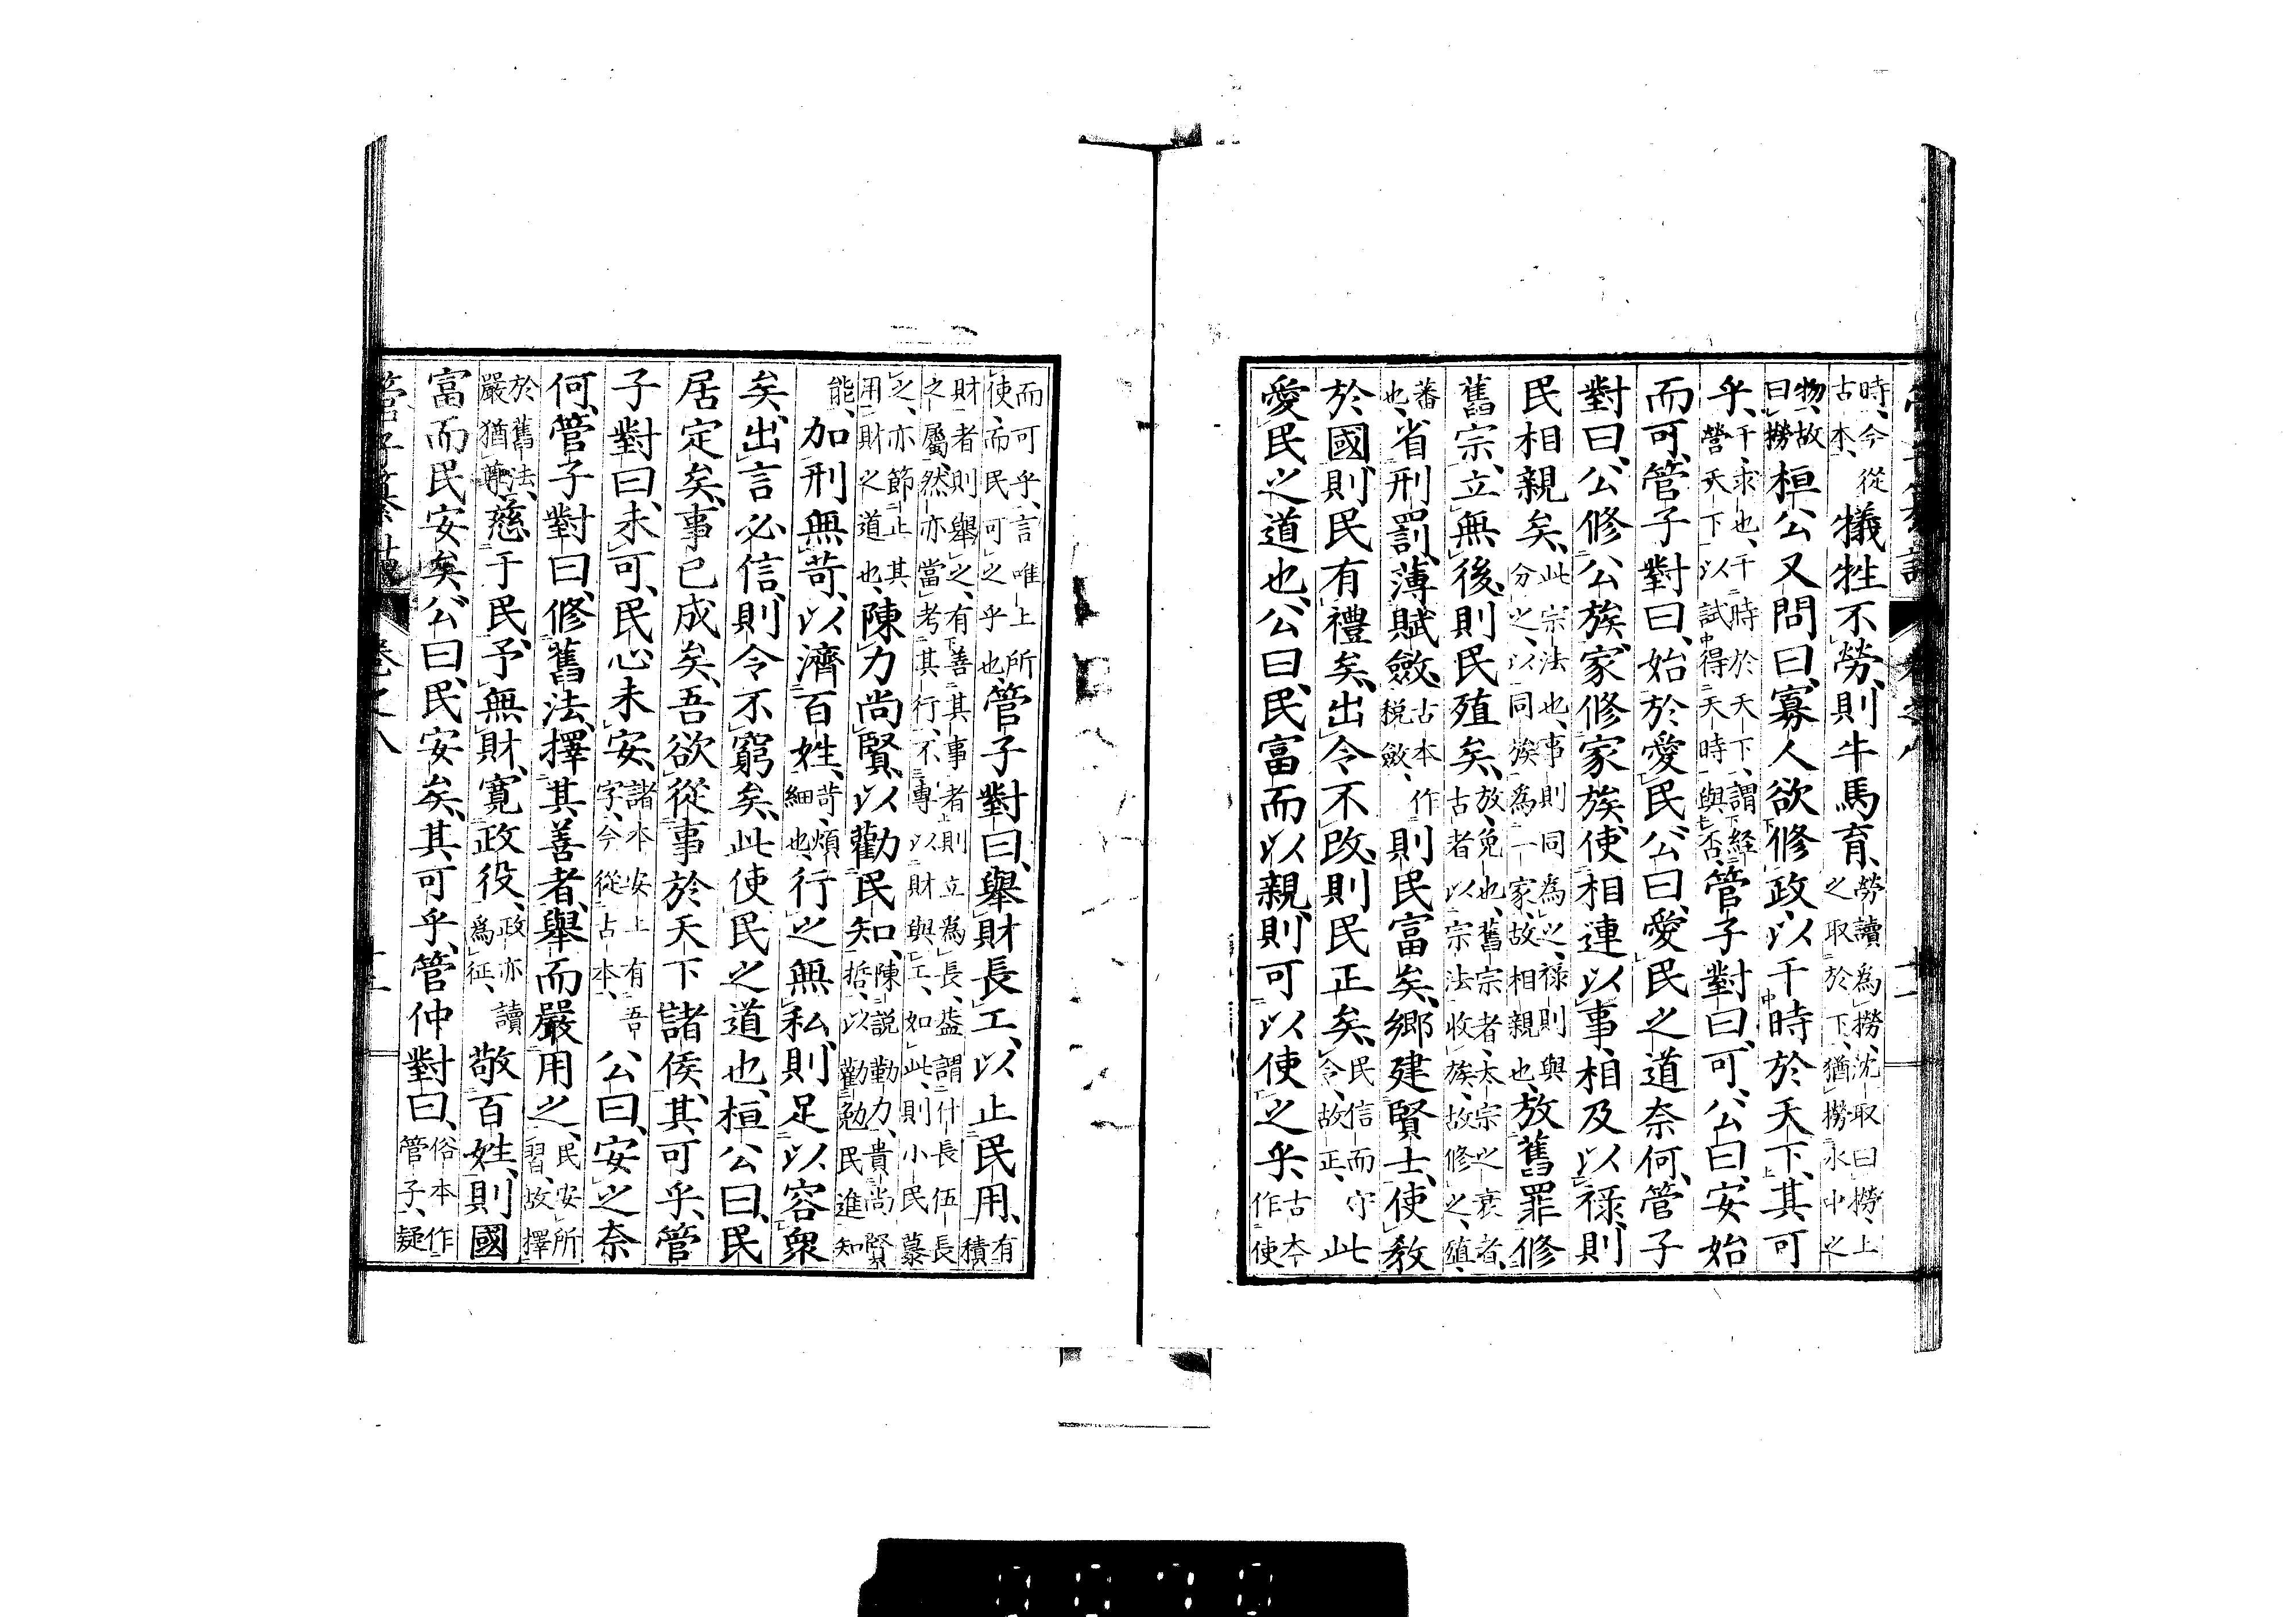 時、今從
古本、
犧牲不勞、則牛馬育、
勞讀為撈、沈取曰撈、上
之取於下、猶撈水中之
物、故
曰撈
桓公又問曰、寡人欲修政、以干時於天下、其可
乎、
干、求也、干時於天下、謂經
營天下以試得天時與否、
管子對曰、可、公曰、安始
而可、管子對曰、始於愛民、公曰、愛民之道奈何、管子
對曰、公修公族、家修家族、使相連以事、相及以祿、則
民相親矣、
此宗法也、事則同為之、祿則與
分之、以同族為一家、故相親也、
放舊罪、修
舊宗、立無後、則民殖矣、
放、免也、舊宗者、太宗之衰者、
古者以宗法收族、故修之、殖、
蕃
也、
省刑罰、薄賦斂、
古本作
稅斂、
則民富矣、鄉建賢士、使教
於國、則民有禮矣、出令不改、則民正矣、
民信而守
令、故正、
此
愛民之道也、公曰、民富而以親、則可以使之乎、
古本
作使
而可乎、言唯上所
使、而民可之乎也、
管子對曰、舉財長工、以止民用、
有
積
財者則舉之、有善其事者則立為長、蓋謂什長伍長
之屬、然亦當考其行、不專以財與工、如此、則小民慕
之、亦節止其
用財之道也、
陳力尚賢、以勸民知、
陳說勤力、貴尚賢
哲、以勸勉民進知
能、
加刑無苛、以濟百姓、
苛、煩
細也、
行之無私、則足以容眾
矣、出言必信、則令不窮矣、此使民之道也、桓公曰、民
居定矣、事已成矣、吾欲從事於天下諸侯、其可乎、管
子對曰、未可、民心未安、
諸本安上有吾
字、今從古本、
公曰、安之奈
何、管子對曰、修舊法、擇其善者、舉而嚴用之、
民安所
習、故擇
於舊法、
嚴猶尊
慈于民、予無財、寬政役、
政亦讀
為征、
敬百姓、則國
富而民安矣、公曰、民安矣、其可乎、管仲對曰、
俗本作
管子、疑
卷之八